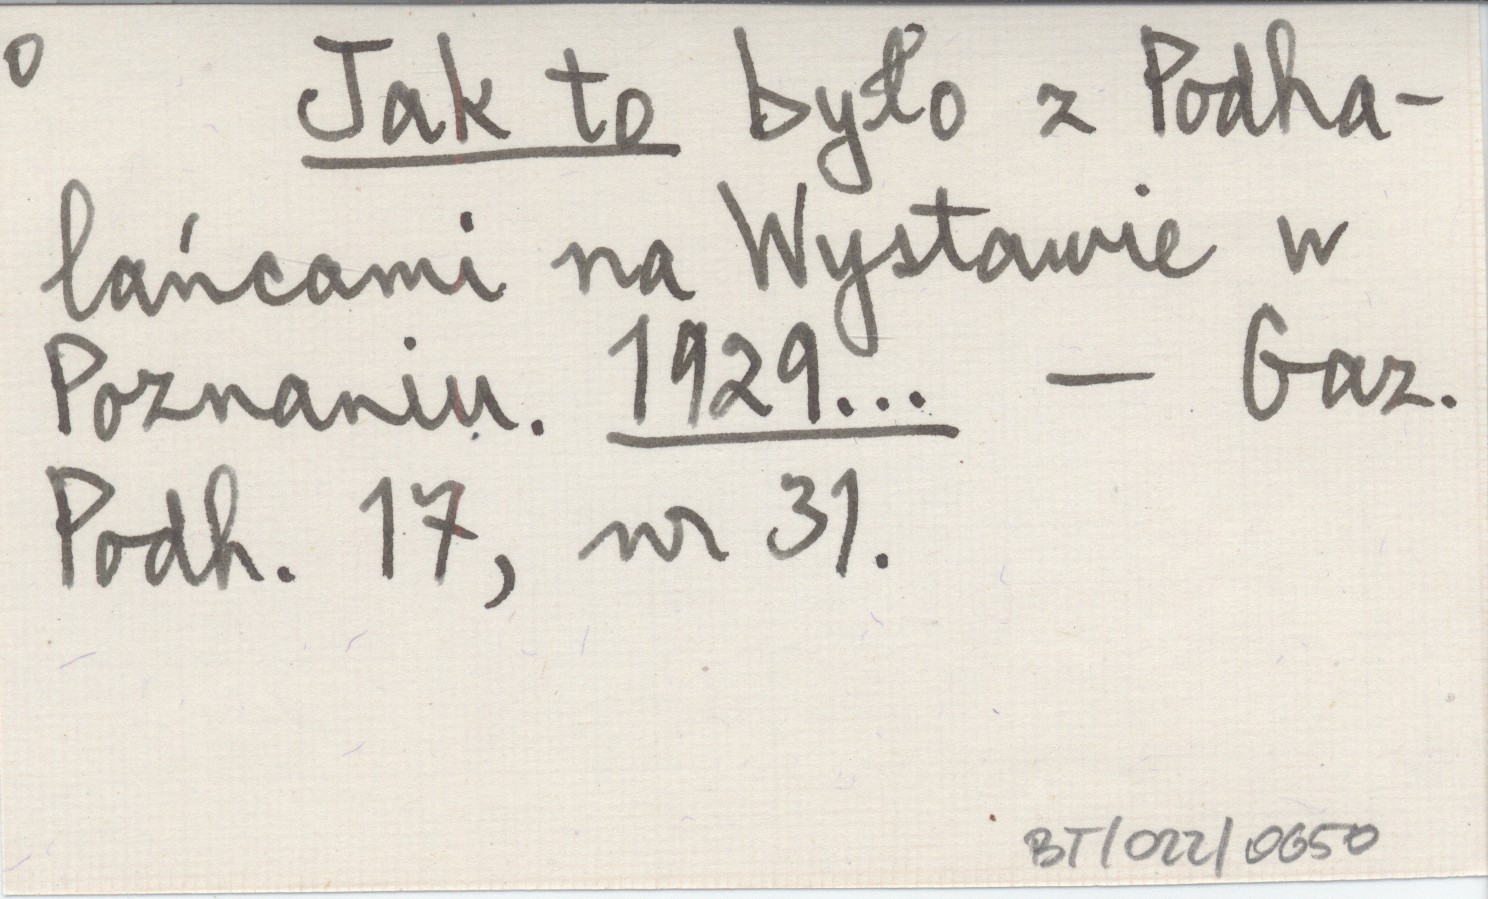 o Jak to było z Podha-
lańcami na Wystawie w
Poznaniu. 1929... — Gaz.
Podh. 17, nr 31.
BT/022/0650